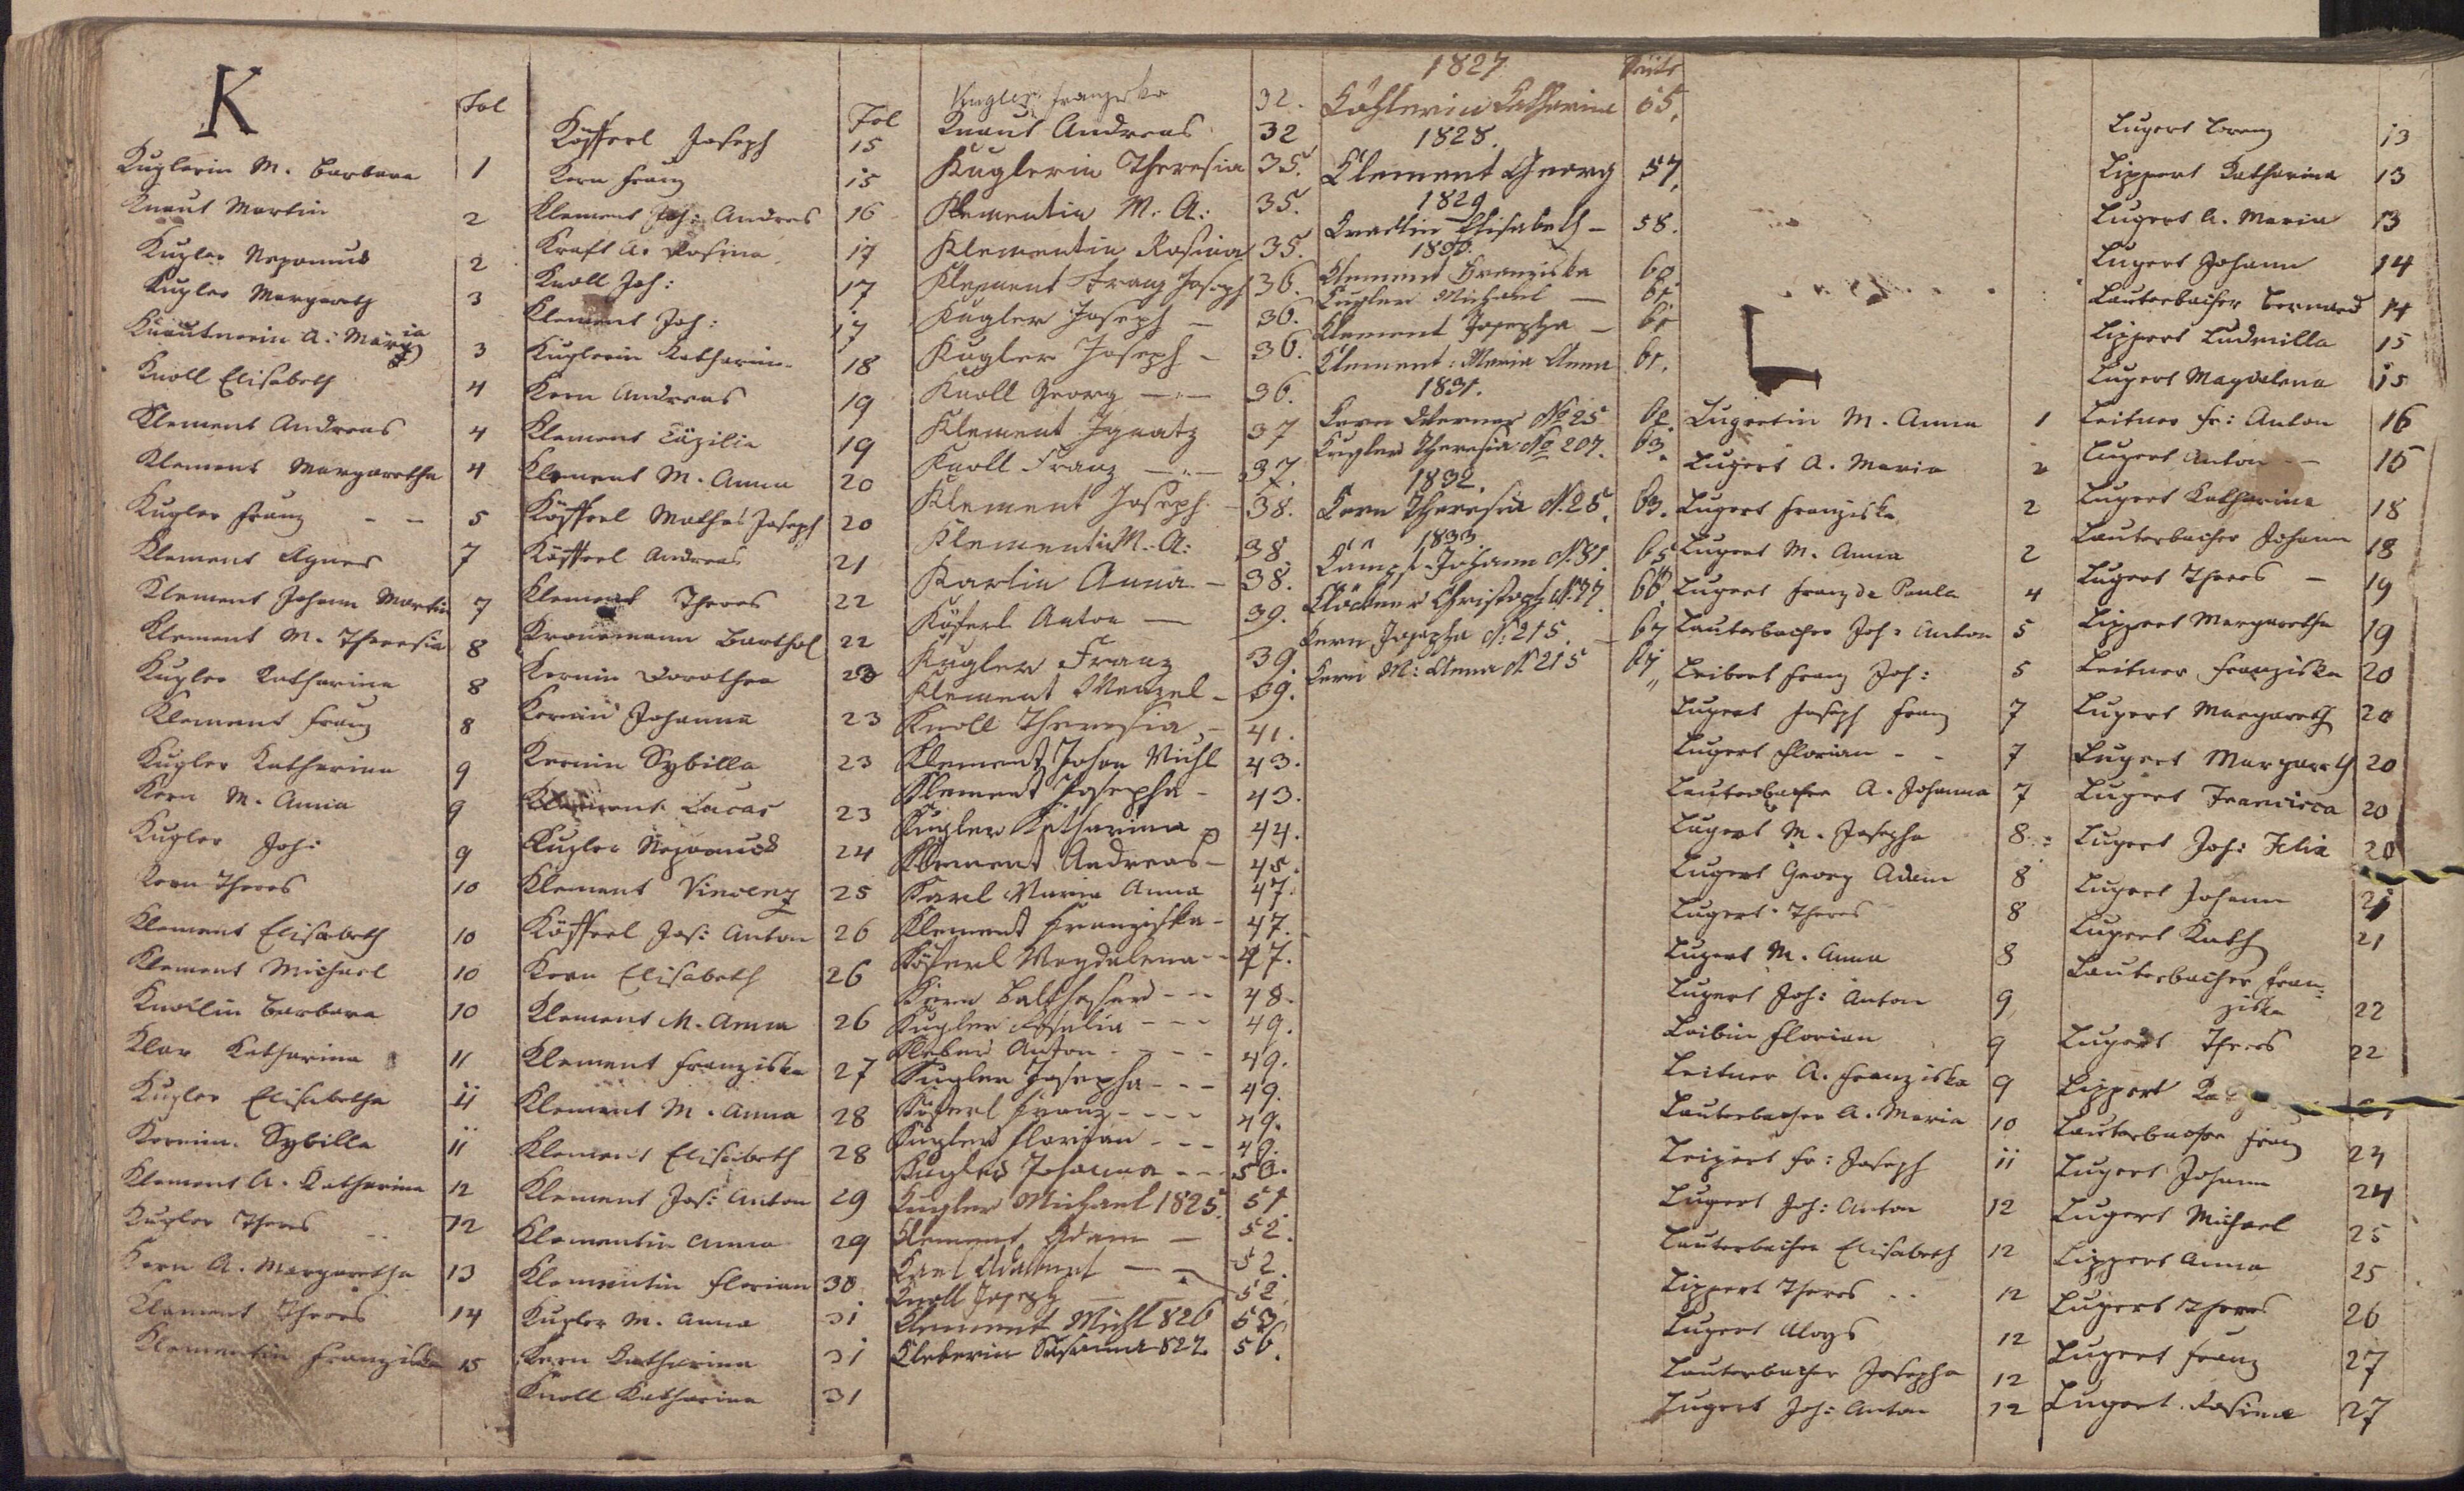 K
Fol
Kuglerin M. Barbara 1
Knaut Martin 2
Kugler Nepomuk 2
Kugler Margareth 3
Knautnerin A. Maria 3
Knoll Elisabeth 4
Klement Andreas 4
Klement Margaretha 4
Kugler Franz - - 5
Klement Agnes 7
Klement Johann Martin 7
Klement M. Theresia 8
Kugler Katharina 8
Klement Franz 8
Kugler Katharina 9
Kern M. Anna 9
Kugler Joh: 9
Kern Theres 10
Klement Elisabeth 10
Klement Michael 10
Knollin Barbara 10
Klar Katharina 11
Kugler Elisabetha 11
Kernin Sybilla 11
Klement A. Katharina 12
Kugler Theres 12
Kern A. Margaretha 13
Klement Theres 14
Klementin Franziska 15
Fol
Köfferl Joseph 15
Kern Franz 15
Klement Joh: Andres 16
Kraft A. Rosina 17
Knoll Joh: 17
Klement Joh: 17
Kuglerin Katharin. 18
Kern Andreas 19
Klement Cäzilia 19
Klement M. Anna 20
Köfferl Mathes Joseph 20
Köfferl Andreas 21
Klement Theres 22
Kronemann Barthol 22
Kernin Dorothea 23
Kernin Johanna 23
Kernin Sybilla 23
Klement Lucas 23
Kugler Nepomuk 24
Klement Vincenz 25
Köfferl Jos: Anton 26
Kern Elisabeth 26
Klement M. Anna 26
Klement Franziska 27
Klement M. Anna 28
Klement Elisabeth 28
Klement Jos: Anton 29
Klementin Anna 29
Klementin Florian 30
Kugler M. Anna 31
Kern Katharina 31
Knoll Katharina 31
Kugler Franziska 32.
Knaut Andreas 32
Kuglerin Theresia 35.
Klementin M. A: 35.
Klementin Rosina 35.
Klement Franz Joseph 36.
Kugler Joseph - 36.
Kugler Joseph - 36.
Knoll Georg - 36.
Klement Ignatz 37
Knoll Franz - 37.
Klement Joseph - 38.
Klementin M. A: 38.
Karlin Anna - 38.
Köferl Anton - 39.
Kugler Franz 39.
Klement Wenzel - 39.
Knoll Theresia - 41.
Klement Johan Michl 43.
Klement Josepha - 43.
Kugler Katharina 44.
Klement Andreas - 45.
Karl Maria Anna 47.
Klement Franziska - 47.
Köferl Magdalena - - 47.
Kern Balthasard - - 48.
Kugler Rosalia - - - 49.
Kleber Anton - - - - 49.
Kugler Josepha - - - 49.
Köferl Franz - - - - 49.
Kugler Florian - - - 49.
Kugler Johanna - - - 50.
Kugler Michael 1825. 51.
Klement Adam - 52.
Karl 52.
Knoll Joseph 52.
Klement Michl 826 53.
Kleberin Susanna 827. 56.
1827
Seite
Köhlerin Katharina 55.
1828.
Clement Georg 57.
1829
Elisabeth - 58.
1830.
Clement Franziska 60
Kugler Michael - 61.
Klement Josepha - 61
Clement: Maria Anna 61.
1831.
Kern Werner No 25 62.
Kugler Theresia No 207. 63.
1832.
Kern Theresia N. 25. 63.
1833.
Kämpf Johann N. 51. 65
Klöckner Christoph N. 37. 66
Kern Josepha N: 215. - 67
Kern M: Anna N 215 67
L
Lugertin M. Anna 1
Lugert A. Maria 2
Lugert Franziska 2
Lugert M. Anna 2
Lugert Franz de Paula 4
Lauterbacher Joh: Anton 5
Leibert Franz Joh: 5
Lugert Joseph Franz 7
Lugert Florian - - 7
Lauterbacher A. Johanna 7
Lugert M. Josepha 8
Lugert Georg Adam 8
Lugert Theres 8
Lugert M. Anna 8
Lugert Joh: Anton 9
Leibin Florian 9
Leitner A. Franziska 9
Lauterbacher A. Maria 10
Leipert Fr: Joseph 11
Lugert Joh: Anton 12
Lauterbacher Elisabeth 12
Lippert Theres - - 12
Lugert Aloys 12
Lauterbacher Josepha 12
Lugert Joh: Anton 12
Lugert Lorenz 13
Lippert Katharina 13
Lugert A. Maria 13
Lugert Johann 14
Lauterbacher Bernard 14
Lippert Ludmilla 15
Lugert Magdalena 15
Leitner Fr: Anton 16
Lugert Anton - 16
Lugert Katharina 18
Lauterbacher Johann 18
Lugert Theres - 19
Lippert Margaretha 19
Leitner Franziska 20
Lugert Margareth 20
Lugert Margareth 20
Lugert Francisca 20
Lugert Joh: Felix 20
Lugert Johann 21
Lugert Kath 21
Lauterbacher Fran=
ziska 22
Lugert Theres 22
Lippert
Lauterbacher Franz 24
Lugert Johann 24
Lugert Michael 25
Lippert Anna 25
Lugert Theres 26
Lugert Franz 27
Lugert Rosina 27